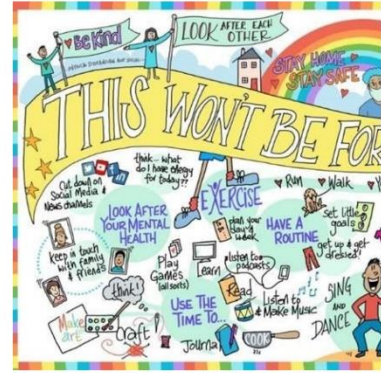 Be Kind
LOOK AFTER EACH
OTHER
STAY HOME
STAY SAFE
THIS WON'T BE FOR
Cut down on
Social Media &
News channels
think... what
do I have energy
for today??
EXERCISE
Run
Walk
LOOK AFTER
YOUR MENTAL
HEALTH
plan your
day &
week
HAVE A
ROUTINE
Set little
goals
get up & get
dressed!
keep in touch
with family
& friends
Play
Games
(all sorts)
Learn
listen to
podcasts
think!
USE THE
TIME TO...
Read
Listen to
& Make Music
SING
AND
DANCE
Make
art
Craft
Journal
COOK